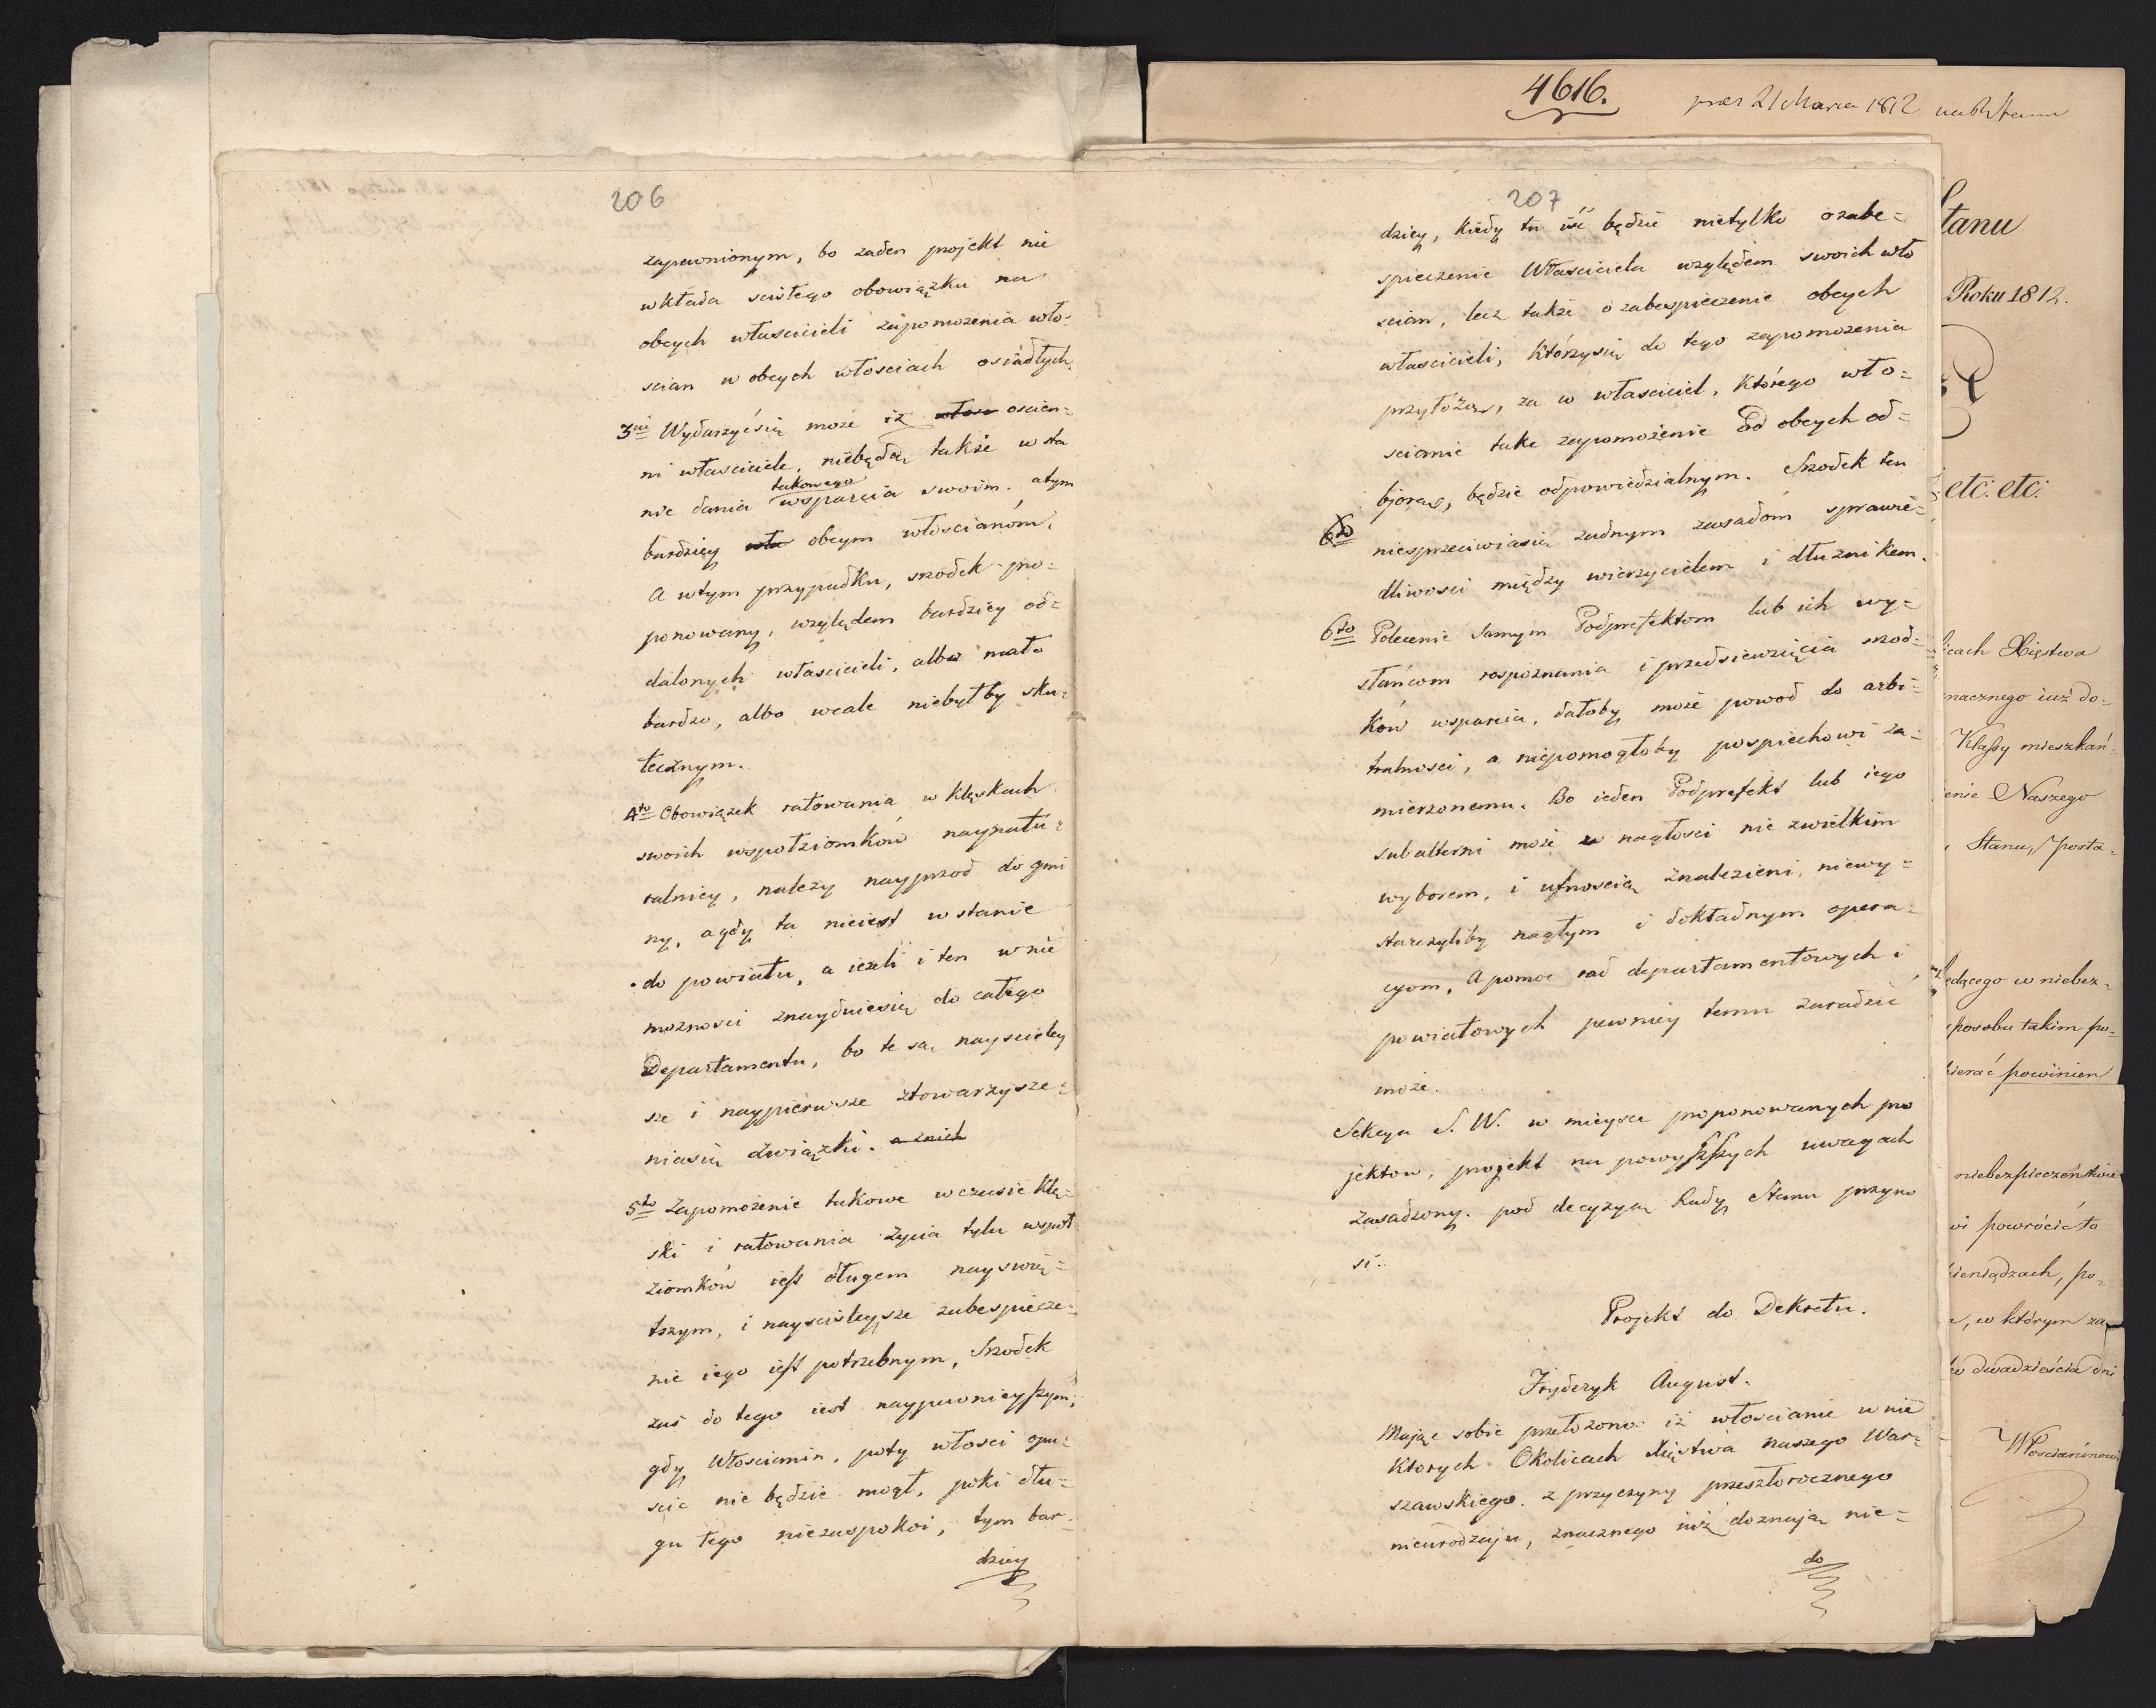 206
zapewnionym, bo zaden projekt nie
wkłada scisłego obowiązku na
obcych właścicieli zapomozenia wło-
scian w obcych włosciach osiadłych.
3cie Wydarzyćsię może iż włas oscien-
ni właściciele, niebędą także w sta
nie dania takowego wsparcia swoim. a tym
bardziey wła obcym włoscianóm,
A wtym przypadku, srzodek pro-
ponowany, względem bardziey od-
dalonych właścicieli, albo mało
bardzo, albo wcale niebyłby sku-
tecznym.
4to Obowiązek ratowania w klęskach
swoich wspołziomków naynatu-
ralniey, należy nayprzod do gmi
ny, a gdy ta nieiest w stanie
do powiatu, a ieżeli i ten w nie
mozności znaydziesię do całego
Departamentu, bo te są nayscisley
sze i naypierwsze stowarzysze-
niasię związki. a znich
5to Zapomożenie takowe w czasie klę-
ski i ratowania życia tylu wspoł
ziomków iest długem nayswię-
tszym, i nayściśleysze zabespiecze-
nie iego iest potrzebnym, Srzodek
zaś do tego iest naypewnieyszym,
gdy Włoscianin, poty włosci opu-
scić nie będzie mógł, poki dłu-
gu tego niezaspokoi, tym bar-
dziey
4616.
207
dziey, kiedy tu iść będzie nietylko o zabe-
spieczenie Właściciela względem swoich wło
scian, lecz także o zabespieczenie obcych
właścicieli, którzysię do tego zapomozenia
przyłożą, za co właściciel, którego wło-
scianie take zapomożenie od obcych od-
biorą, będzie odpowiedzialnym. Srzodek ten
6to niesprzeciwiasię żadnym zasadom sprawie-
dliwosci między wierzycielem i dłużnikem.
6to Polecenie samym Podprefektom lub ich wy-
słańcom rospoznania i przedsiewzięcia srzod-
ków wsparcia, dałoby może powod do arbi-
tralnosci, a niepomogłoby pospiechowi za-
mierzonemu. Bo ieden Podprefekt lub iego
subalterni może w nagłosci nie zwielkim
wyborem, i ufnoscią znalezieni, niewy-
starczyliby nagłym i dokładnym opera-
cyom, A pomoc rad departamentowych i
powiatowych pewniey temu zaradzić
może.
Sekcya S. W. w mieysce proponowanych pro
jektow, projekt na powyższych uwagach
zasadzony. pod decyzyą Rady Stanu przyno
si.
Projekt do Dekretu.
Fryderyk August.
Mając sobie przełozono: iż włoscianie w nie
ktorych Okolicach Xięstwa naszego War-
szawskiego. z przyczyny przeszłorocznego
nieurodzaju, znacznego iuż doznają nie-
do
Stanu
Roku 1812.
etc. etc.
icach Xięstwa
nacznego iuż do-
Klassy mieszkań-
enie Naszego
, Stanu, posta-
edącego w niebez-
sposobu takim po-
ierać powinien
niebezpieczeństwie
wi powrócić to
ieniądzach, po-
, w którym za
o dwadzieścia dni
Włościaninowi